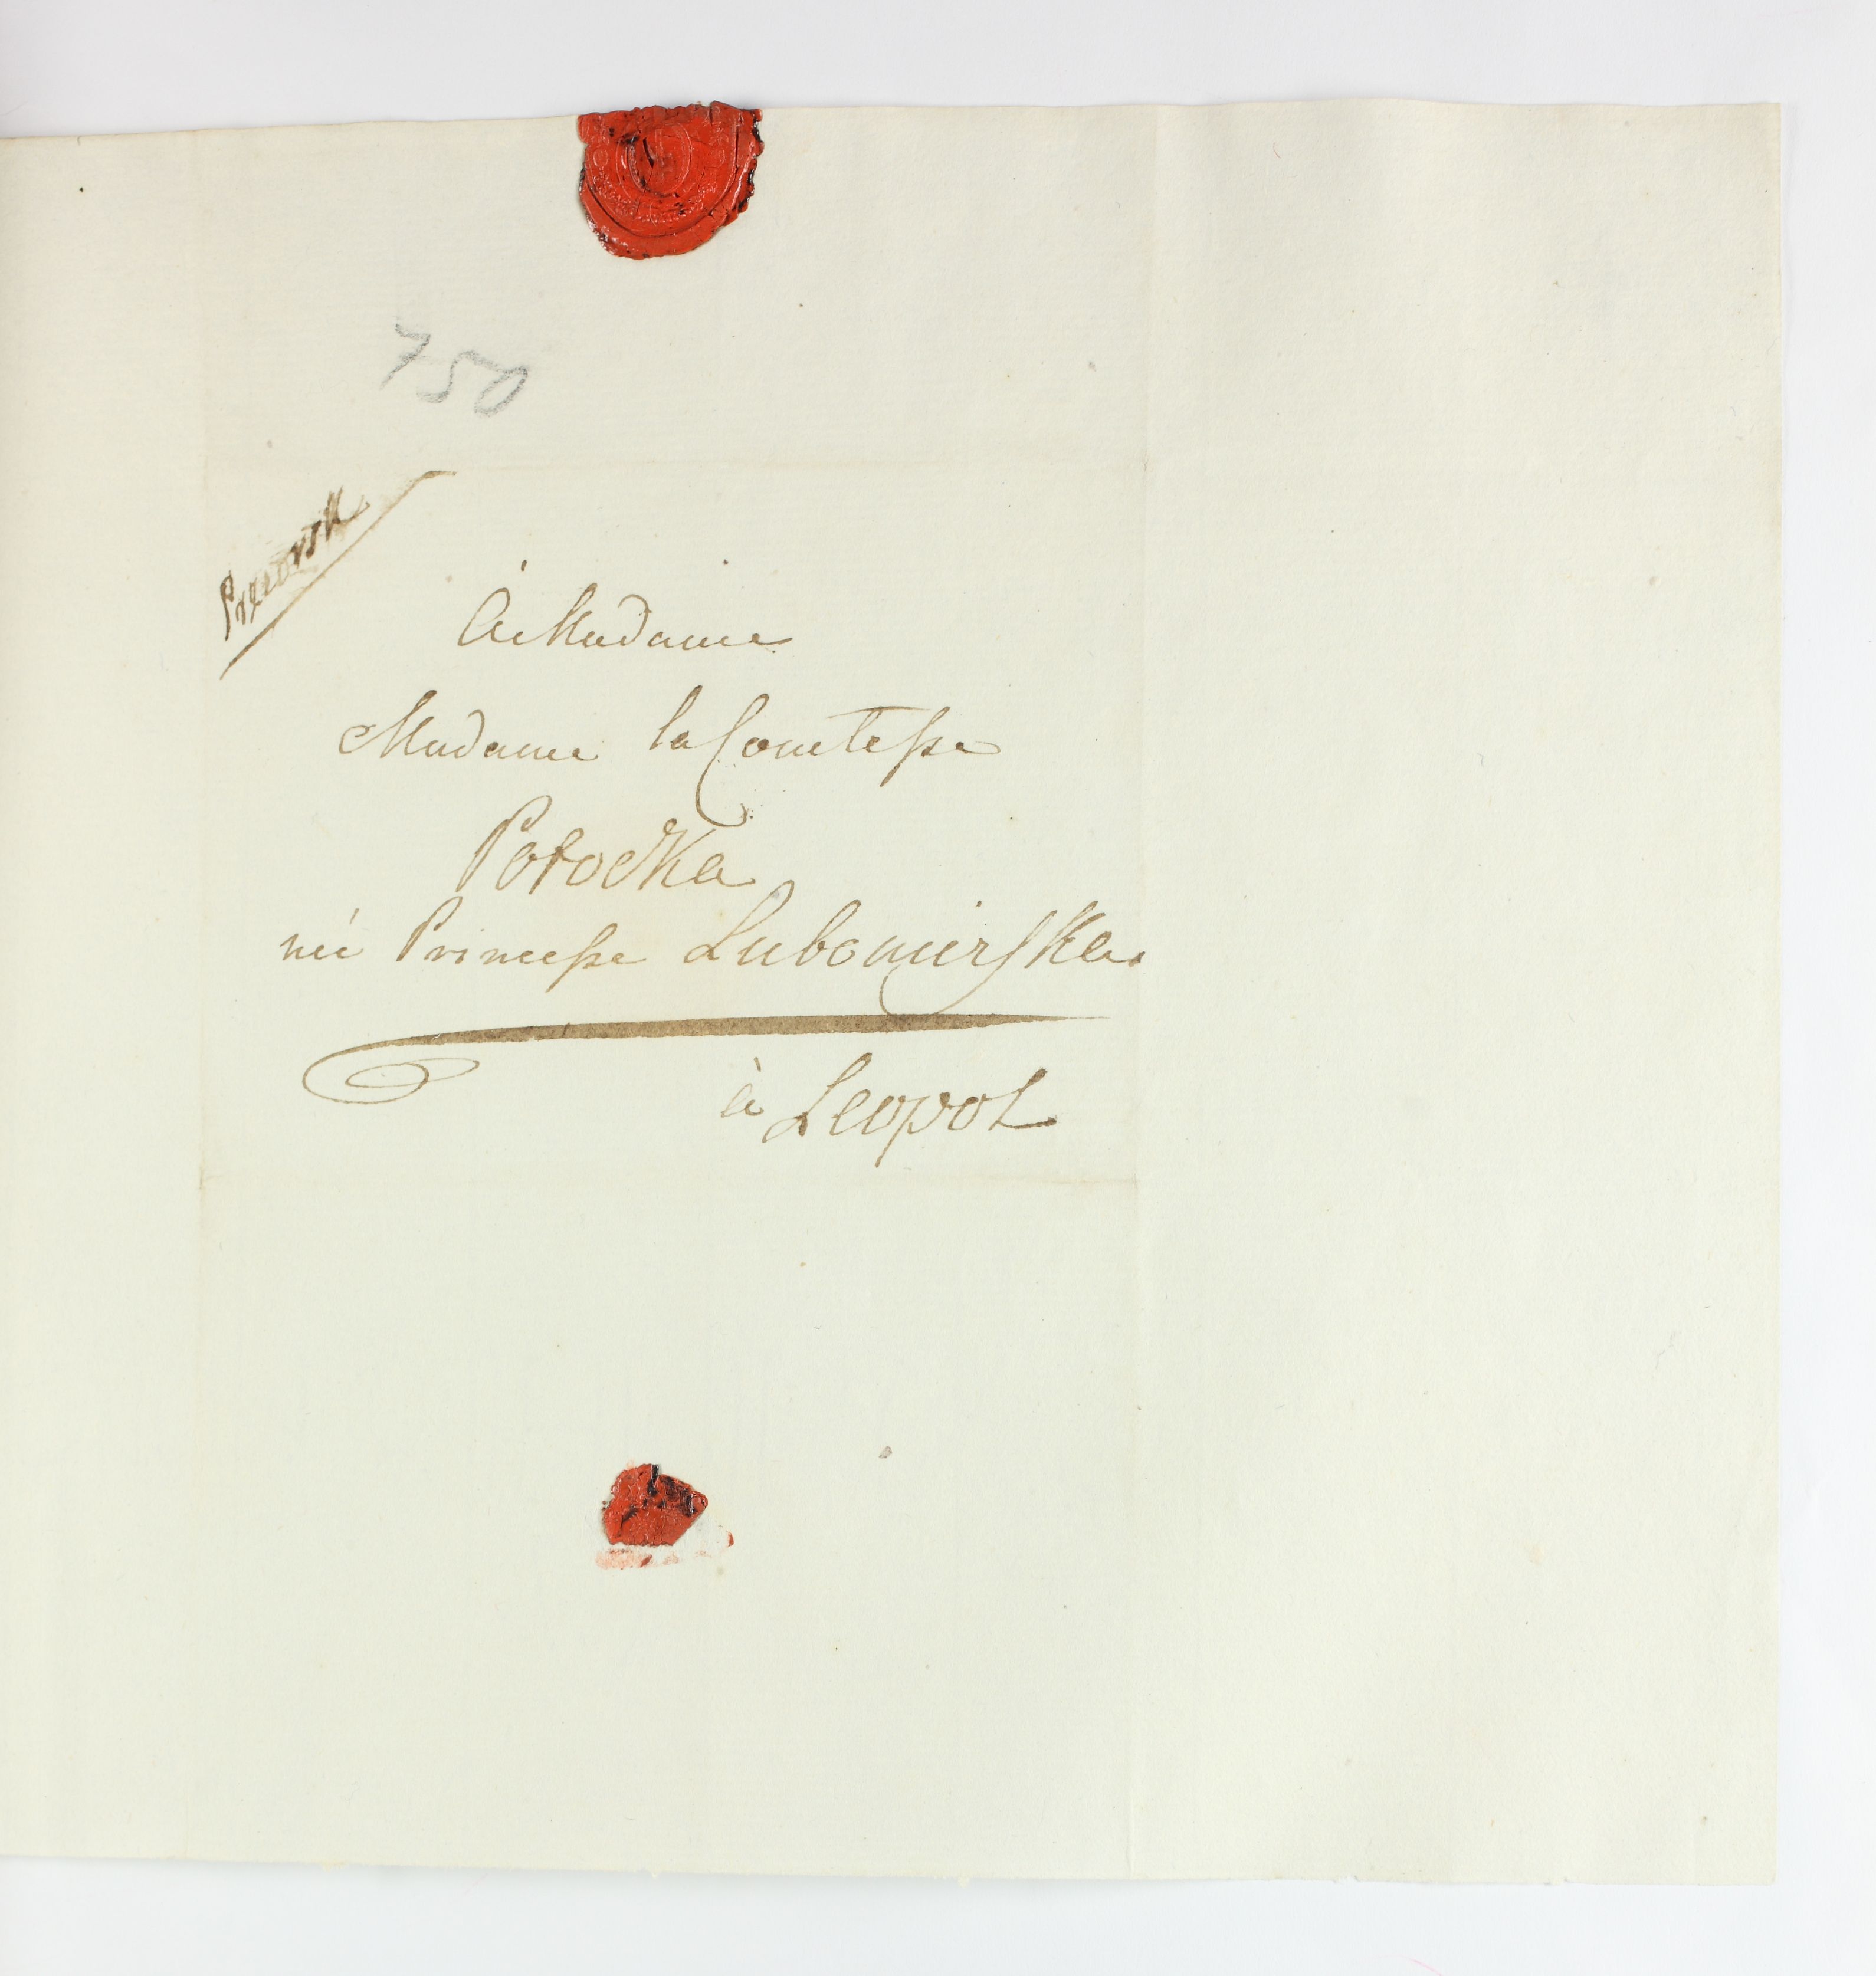 750
Przeorsk
À Madame
Madame la Comtesse
Potocka
née Princesse Lubomirska
à Leopol